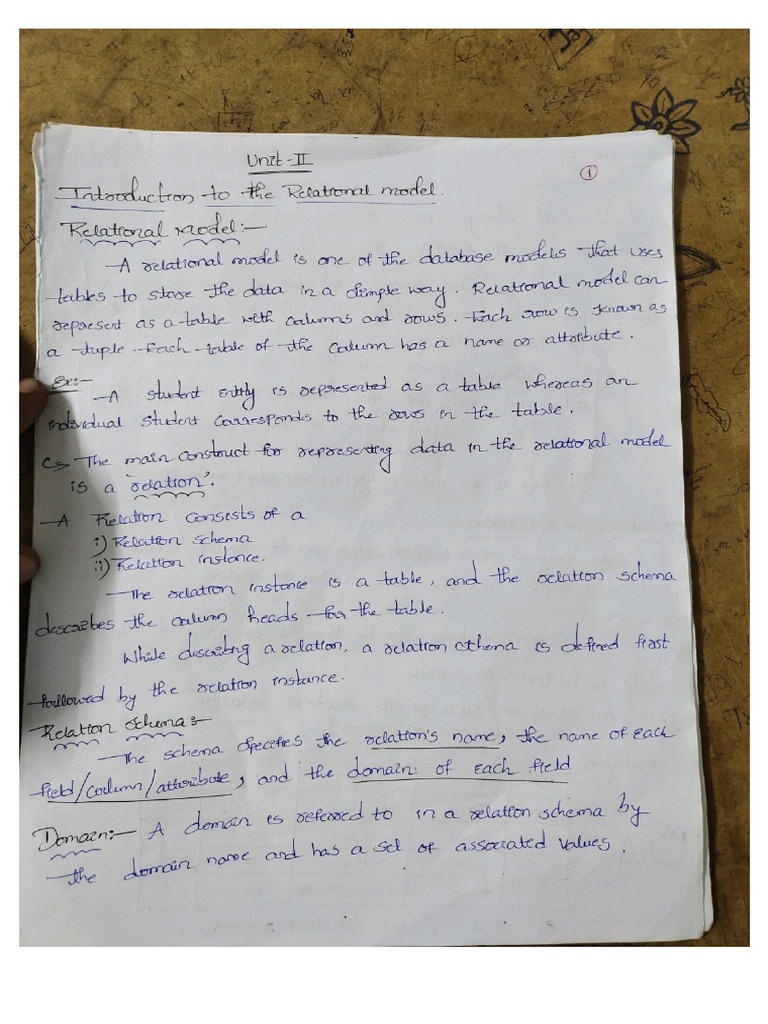 Unit-II
①
Introduction to the Relational model.
Relational Model:-
-A relational model is one of the database models that uses
tables to store the data in a simple way. Relational model can
represent as a table with columns and rows. Each row is known as
a tuple. Each table of the column has a name or attribute.
Ex:-
-A student entity is represented as a table whereas an
individual student corresponds to the rows in the table.
↳ The main construct for representing data in the relational model
is a 'relation'.
-A Relation consists of a
i) Relation schema
ii) Relation instance.
-The relation instance is a table, and the relation schema
describes the column heads for the table.
While describing a relation, a relation schema is defined first
followed by the relation instance.
Relation Schema:-
-The schema specifies the relation's name, the name of each
field/column/attribute, and the domain of each field
Domain:- A domain is referred to in a relation schema by
the domain name and has a set of associated values.